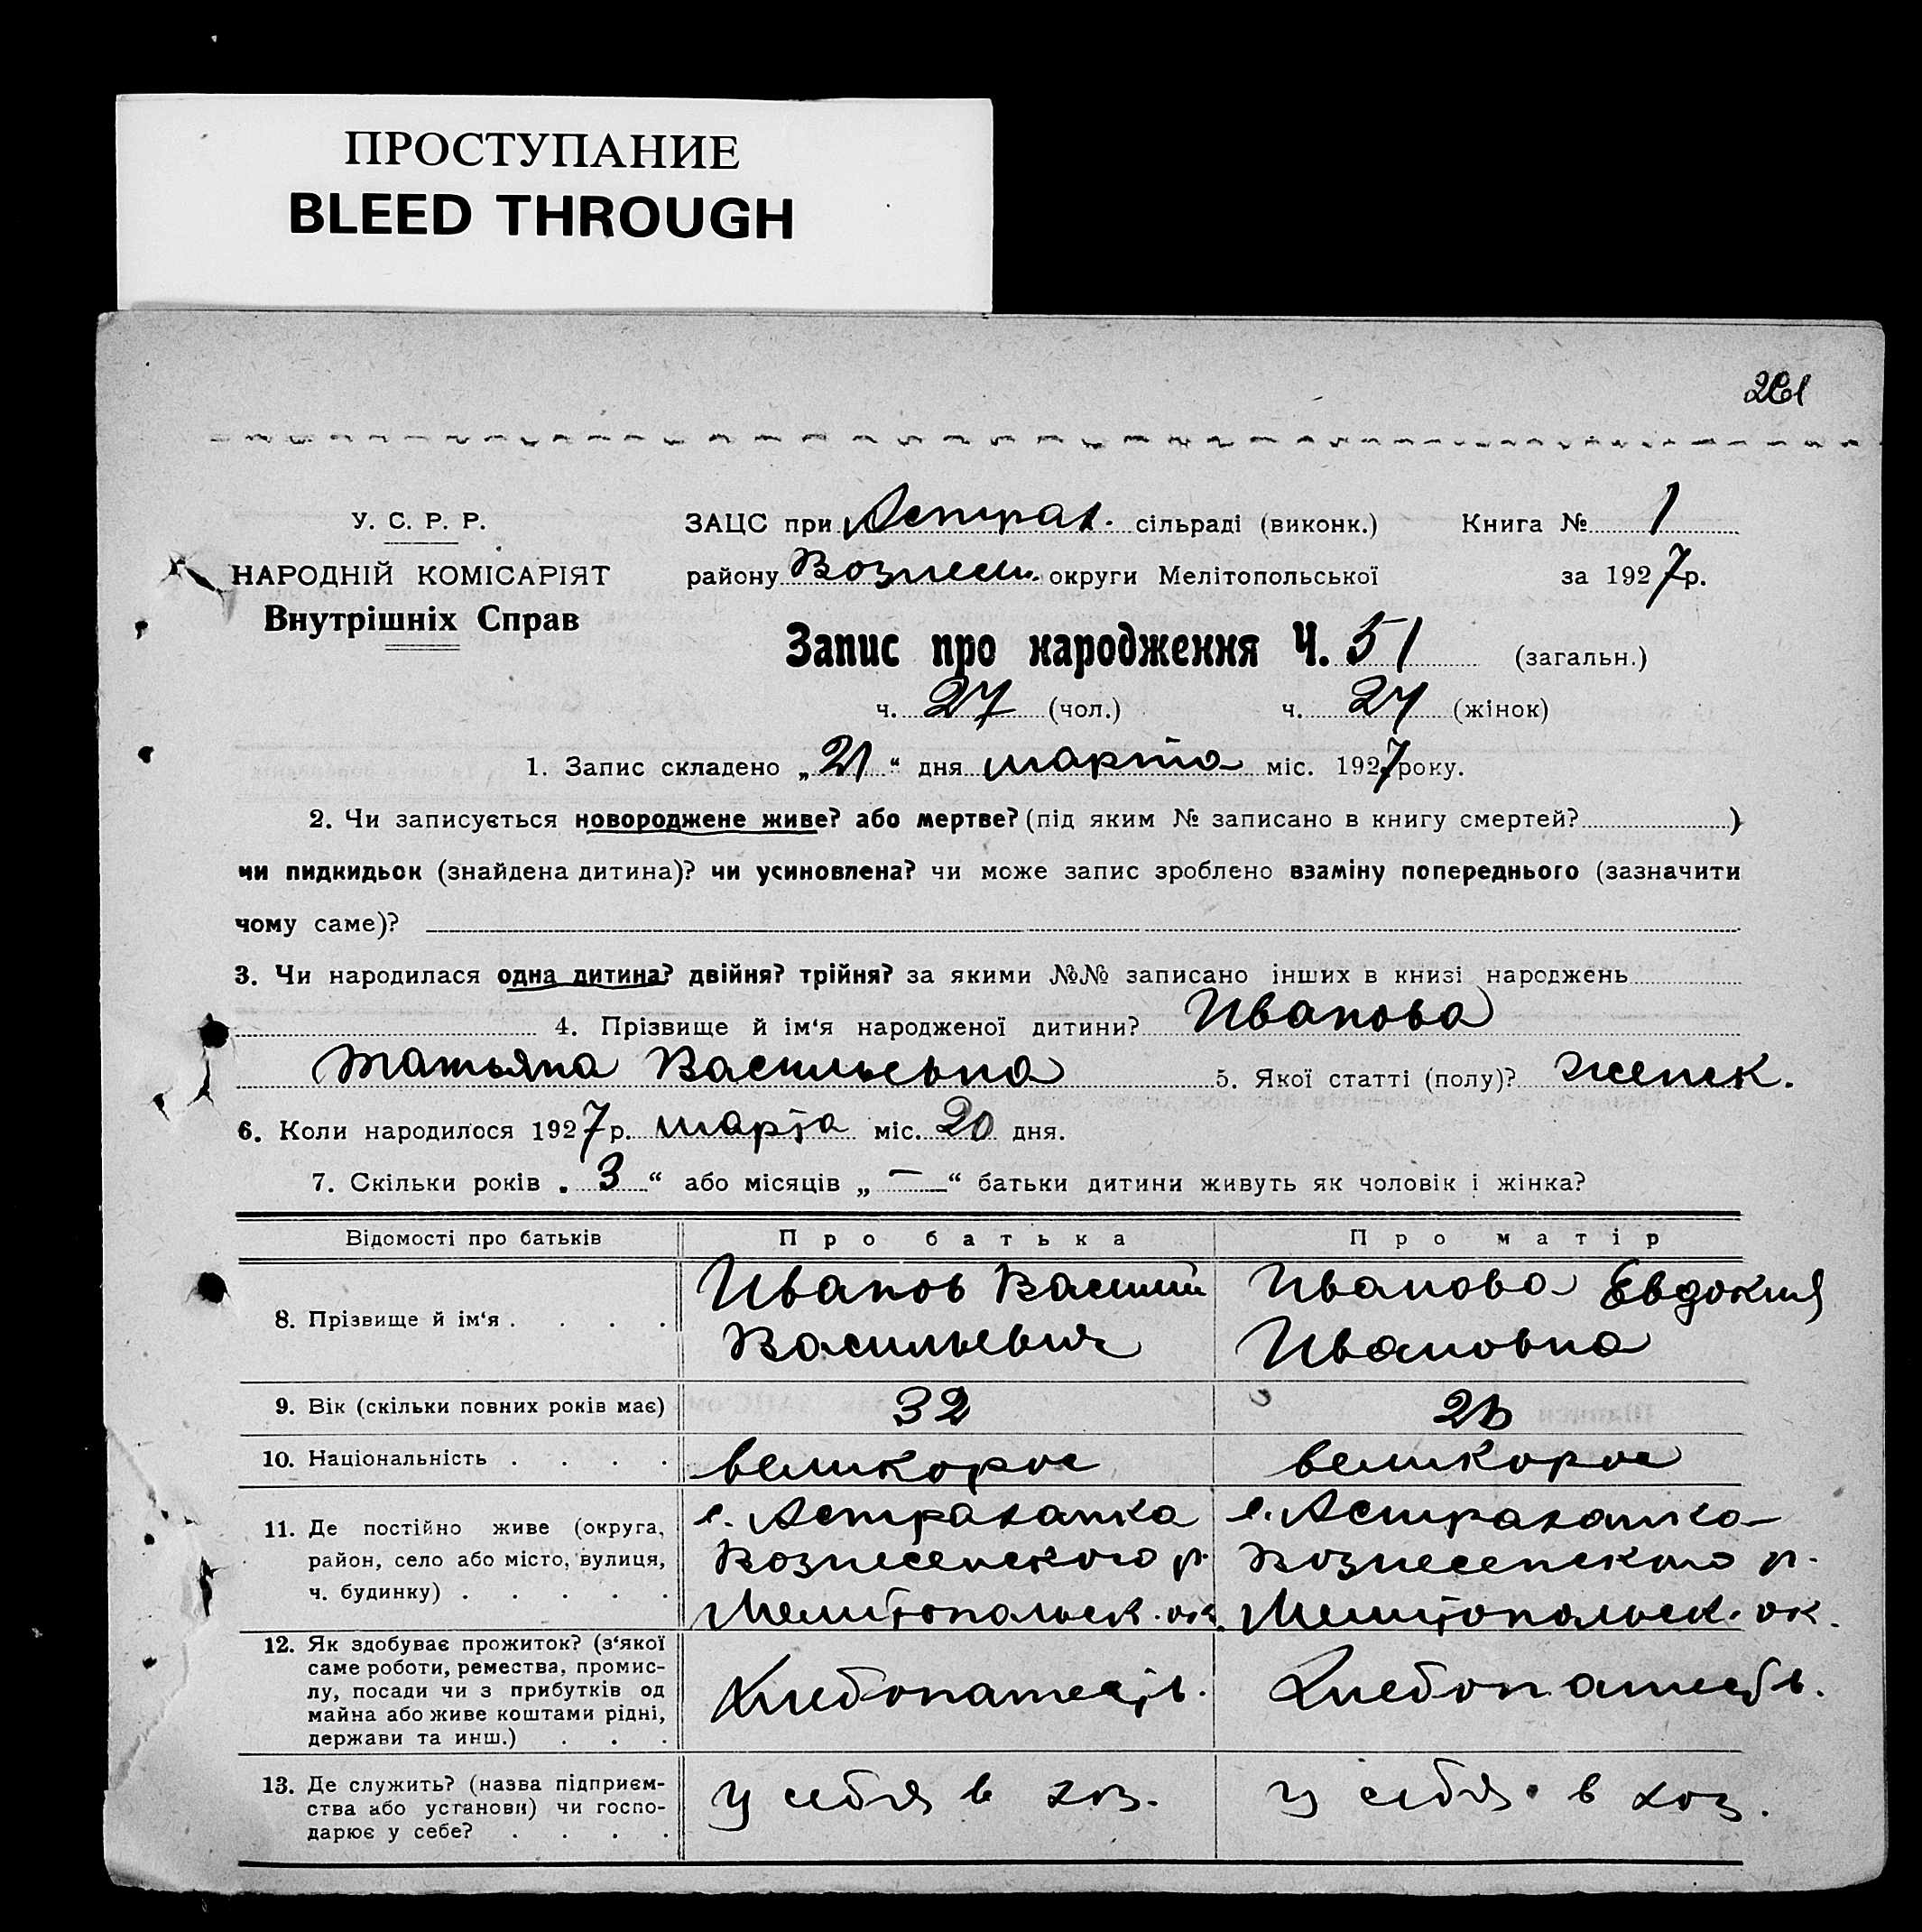 ПРОСТУПАНИЕ
BLEED THROUGH
У. С. Р. Р.
НАРОДНІЙ КОМІСАРІЯТ
Внутрішніх Справ
ЗАЦС при Астрах. сільраді (виконк.) Книга № 1
району Вознесен. округи Мелітопольської за 1927 р.
Запис про народження Ч. 51 (загальн.)
ч. 27 (чол.) ч. 24 (жінок)
1. Запис складено „21“ дня марта міс. 1927 року.
2. Чи записується новороджене живе? або мертве? (під яким № записано в книгу смертей? )
чи пидкидьок (знайдена дитина)? чи усиновлена? чи може запис зроблено взаміну попереднього (зазначити
чому саме)?
3. Чи народилася одна дитина? двійня? трійня? за якими №№ записано інших в книзі народжень
4. Прізвище й ім‘я народженої дитини? Иванова
Татьяна Васильевна 5. Якої статті (полу)? женск.
6. Коли народилося 1927 р. марта міс. 20 дня.
7. Скільки років „3“ або місяців „—“ батьки дитини живуть як чоловік і жінка?
Відомості про батьків Про батька Про матір
8. Прізвище й ім‘я . . . . Иванов Василий Иванова Евдокия
Васильевич Ивановна
9. Вік (скільки повних років має) 32
10. Національність . . . . великорос великорос
11. Де постійно живе (округа, район, село або місто, вулиця, ч. будинку) . . . . .
с. Астраханка с. Астраханка
Вознесенского р. Вознесенского р.
Мелитопольск. ок. Мелитопольск. ок.
12. Як здобуває прожиток? (з‘якої
саме роботи, ремества, промис-
лу, посади чи з прибутків од
майна або живе коштами рідні,
держави та инш.) . . .
Хлебопашеств. Хлебопашеств.
13. Де служить? (назва підприєм-
ства або установи) чи госпо-
дарює у себе? . . . .
у себя в хоз. у себя в хоз.